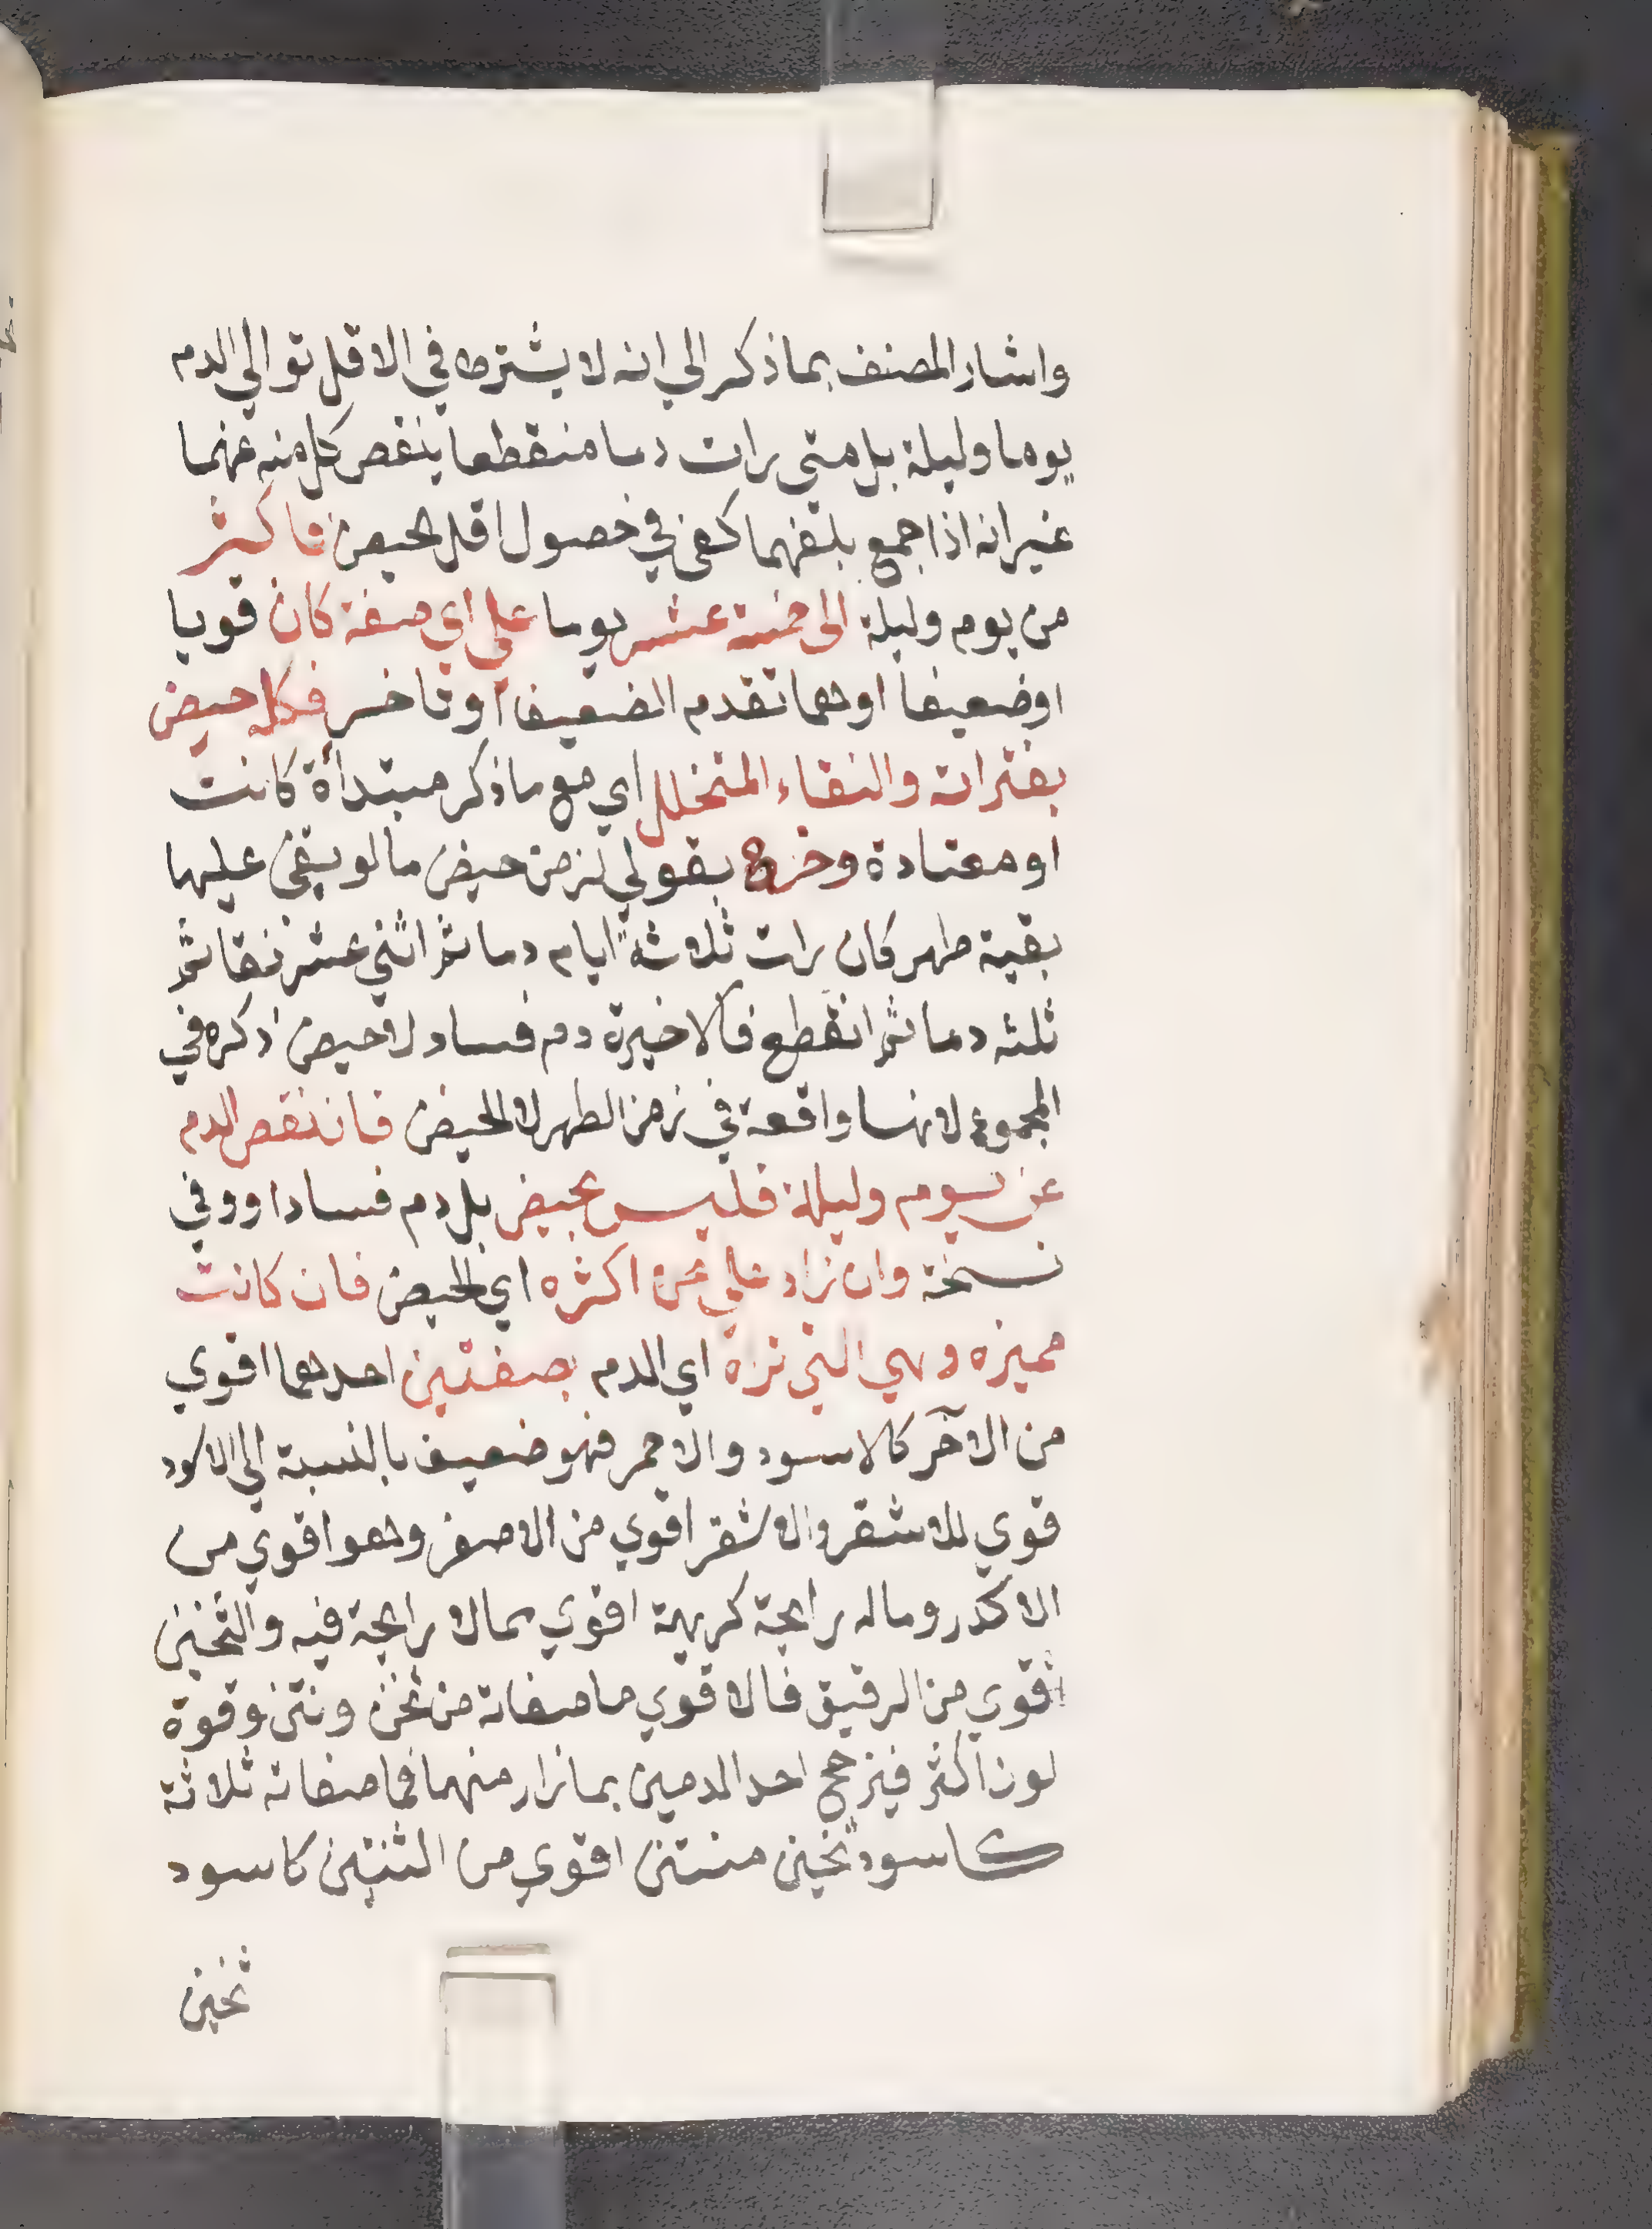 واشار المصنف بما ذكر الي انه لا يشترط في الاقل توالي الدم
يوما وليلة بل متي رات دما منقطعا ينقص كل منه عنهما
غير انه اذا جمع بلغهما كفي في خصول اقل الحيض فاكثر
من يوم وليلة الى خمسة عشر يوما علي اي صفة كان قويا
اوضعيفا اوهما تقدم الضعيف اوتاخر فكله حيض
بفتراته والنقاء المتخلل اي مع ماذكر مبتدأة كانت
او معتادة وخرج بقولي لزمن حيض ما لو بقي عليها
بقية طهر كان رات ثلاثة ايام دما ثم اثني عشر نقا ثم
ثلثه دما ثم انقطع فالاخيرة دم فساد لاحيض ذكره في
المجموع لانها واقعة في زمن الطهر لا الحيض فان نقص الدم
عن يوم وليلة فليس بحيض بل دم فساد اووفي
نسخة وان زاد علي عن اكثره اي الحيض فان كانت
مميزه وهي التي تراه اي الدم بصفتين احدهما اقوي
من الآخر كالاسود والاحمر فهو ضعيف بالنسبة الي الاسود
قوي للاشقر والاشقر اقوي من الاصفر وهو اقوي من
الاكدر وماله رايحة كريهة اقوي مما لا رايحة فيه والثخين
اقوي من الرقيق فالاقوي ما صفاته من ثخن ونتن وقوة
لون اكثر فيرجح احد الدمين بما زاد منهما فما صفاته ثلاثة
كاسود ثخين منتن اقوي من الثنتين كاسود
ثخين